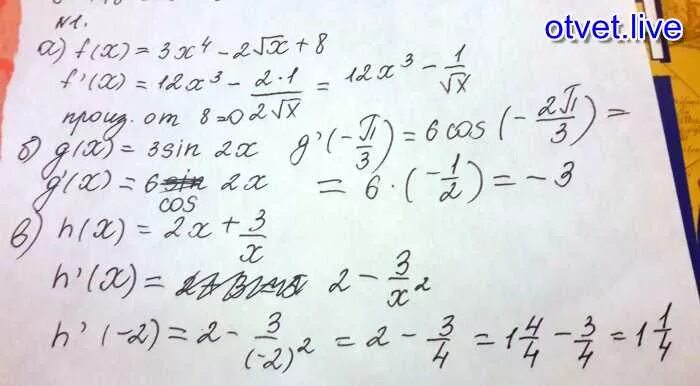 otvet.live
N1.
а) f(x) = 3x⁴ - 2√x + 8
f'(x) = 12x³ - (2·1)/(2√x) = 12x³ - 1/√x
произ. от 8 = 0
б) g(x) = 3sin 2x g'(-π/3) = 6cos(-2π/3) =
g'(x) = 6 cos 2x = 6·(-1/2) = -3
в) h(x) = 2x + 3/x
h'(x) = 2 - 3/x²
h'(-2) = 2 - 3/(-2)² = 2 - 3/4 = 1 4/4 - 3/4 = 1 1/4